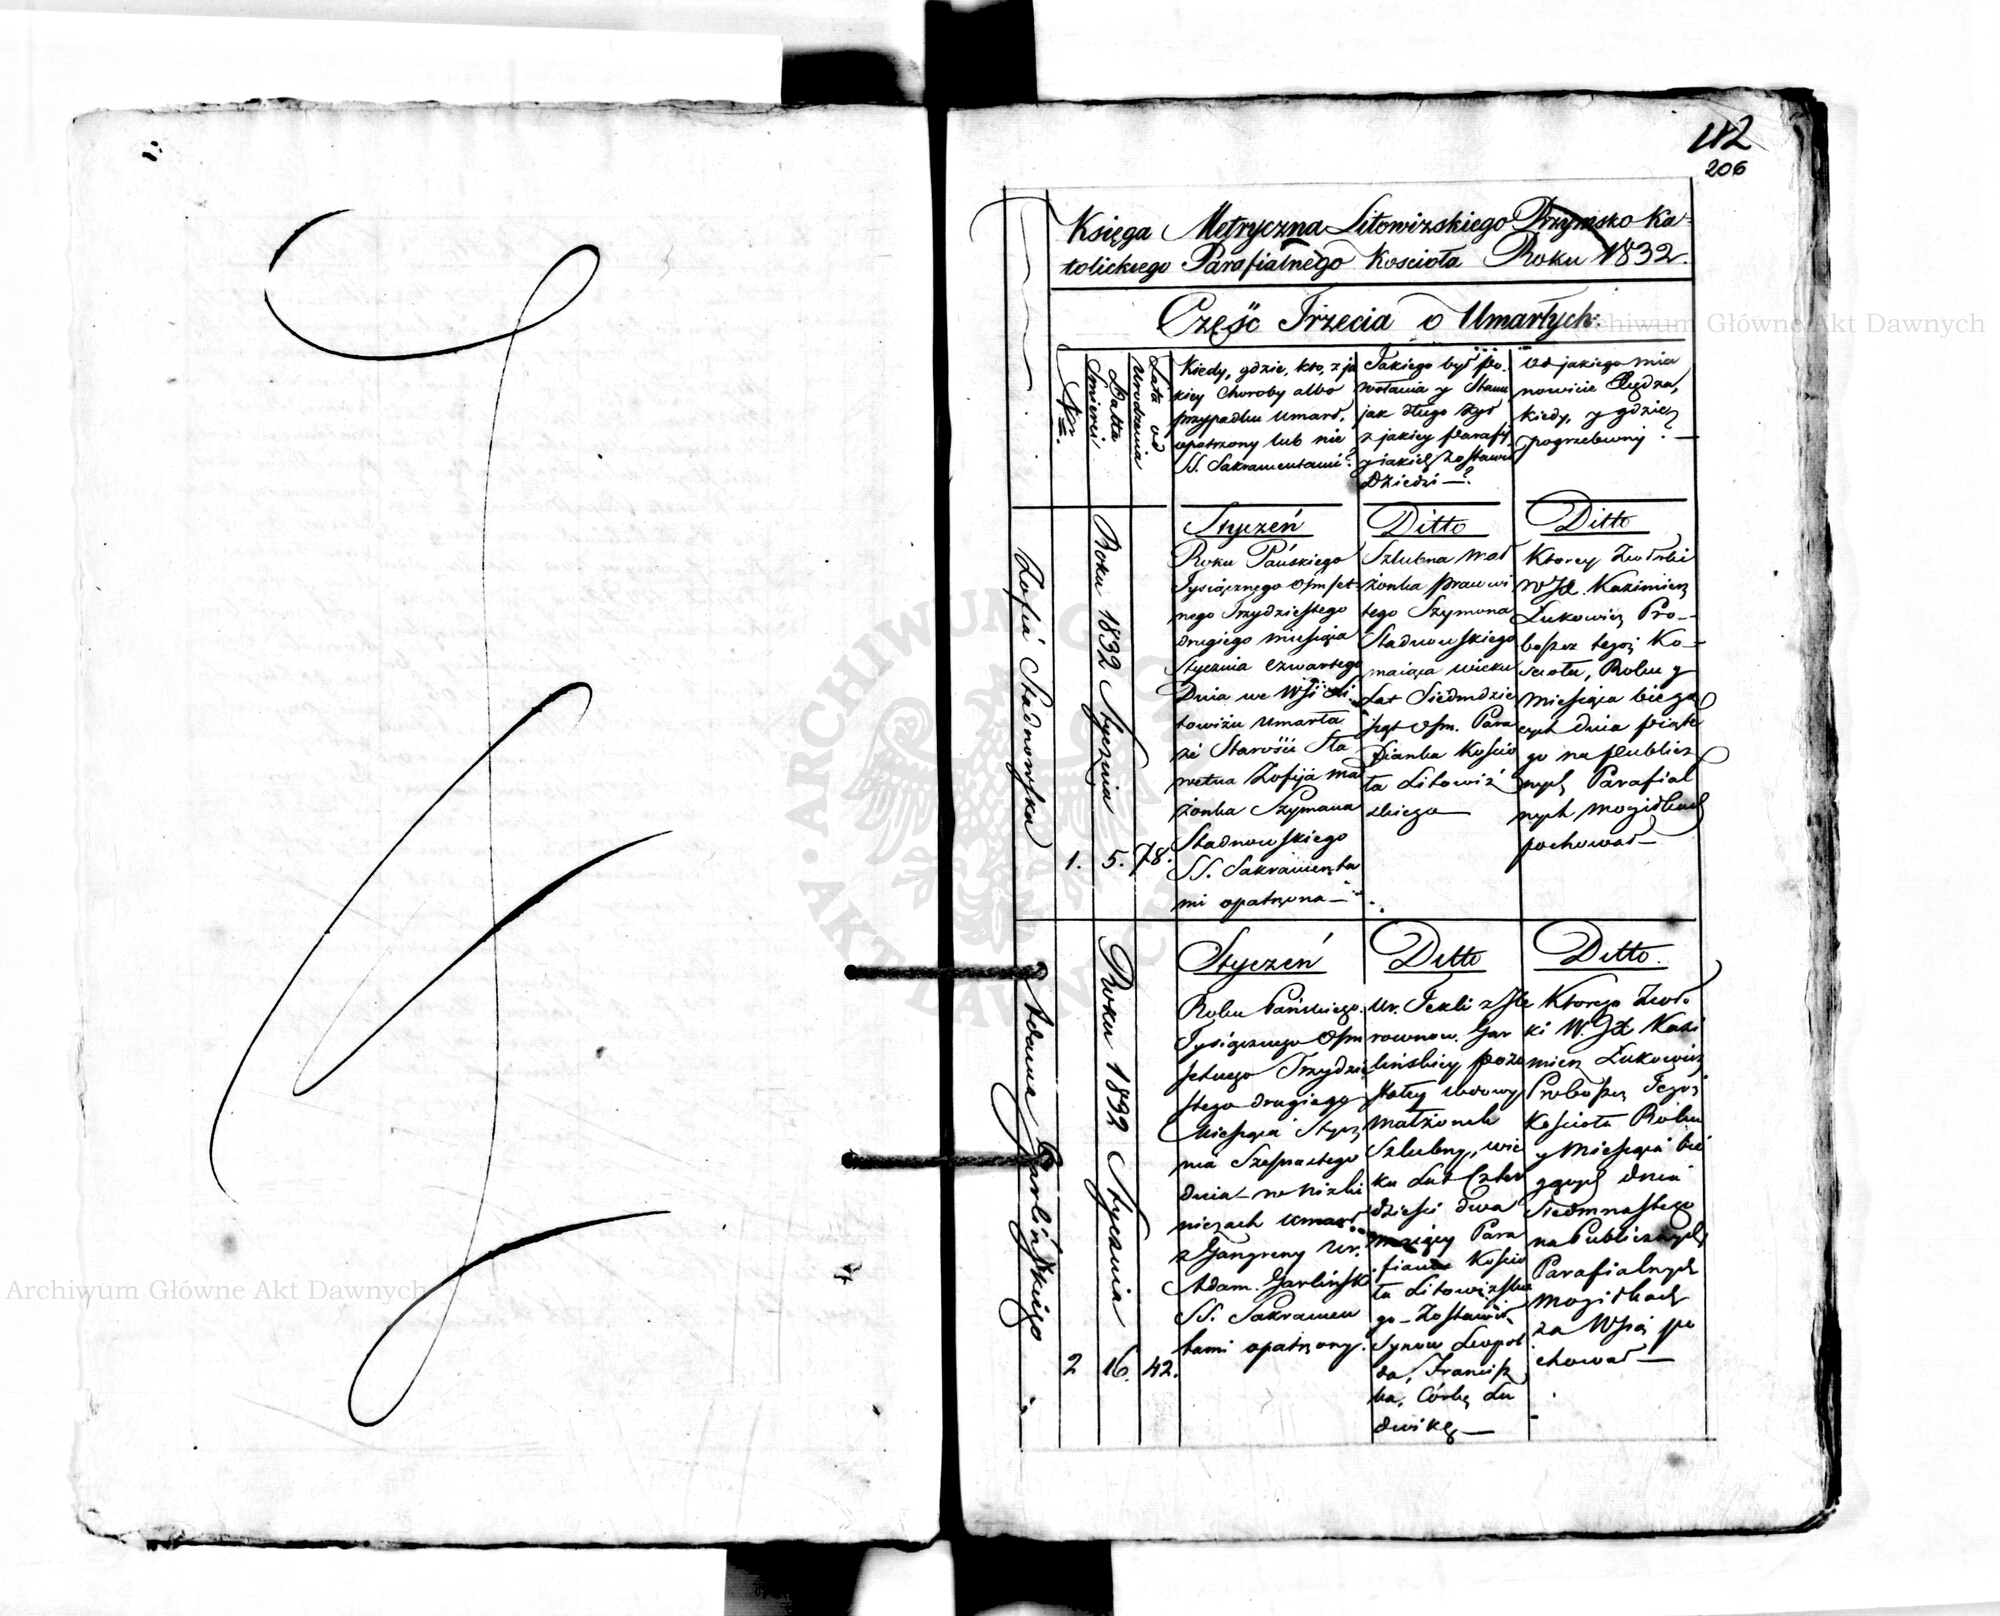 412
206
Księga Metryczna Litowizskiego Rzymsko Ka-
tolickiego Parafialnego Koscioła Roku 1832.
Część Trzecia o Umarłych.
Nr.
Datta Śmierci
Lata od Urodzenia
Kiedy, gdzie, kto, z ja
kiey Choroby albo
przypadku umarł,
opatrzony lub nie
SS. Sakramentami?
Jakiego był po-
wołania y Stanu
jak długo żył
z jakiey Parafy
y jakich zostawił
Dzieci—?
Od jakiego mia
nowicie Księdza,
kiedy, y gdzie
pogrzebiony?—
Zofia Stadnowska
1.
Roku 1832 Stycznia
5.
78.
Styczeń
Roku Pańskiego
Tysiącznego Osmset-
nego Trzydziestego
drugiego miesiąca
Stycznia czwartego
Dnia we Wsi Li
towizu umarła
ze Starości Sła
wetna Zofija ma
żonka Szymana
Stadnowskiego
SS. Sakramenta
mi opatrzona—
Ditto
Szlubna mał
żonka prawi
tego Szymona
Stadnowskiego
maiąca wieku
Lat Siedmdzie
siąt Osm. Para
fianka Kościo
ła Litowiż
skiego—
Ditto
Ktorey Zwłoki
W JX. Kazimierz
Łukowicz Pro-
boszcz tegoż Ko-
scioła, Roku y
miesiąca bieżą
cych dnia piąte
go na Publicz
nych Parafial
nych mogiłkach
pochował—
Adama Garlińskiego
2
Roku 1832 Stycznia
16.
42.
Styczeń
Roku Pańskiego.
Tysiącznego Osm
setnego Trzydzie
stego drugiego
Miesiąca Stycz
nia Szesnastego
dnia—w Nizki
niczach umarł
z Gangreny Ur.
Adam. Garliński
SS. Sakramen
tami opatrzony.
Ditto
Ur. Tekli z
rownow. Gar
lińskiey pozo
stałey wdowy
małżonek
Szlubny, wie
ku Lat Czter
dzieści dwa
maiący Para
fianin Kościo
ła Litowizskie
go—Zostawił
Synow Leopol
da, Francisz
ka, Córkę Lu
dwikę—
Ditto.
Ktorego Zwło
ki W. JX Kazi
mierz Łukowicz
Proboszcz Tegoż
Kościoła Roku
y Miesiąca bie
żących dnia
Siedmnastego
na Publicznych
Parafialnych
mogiłkach
za Wsią po
chował—
Archiwum Główne Akt Dawnych
Archiwum Główne Akt Dawnych
ARCHIWUM GŁÓWNE AKT DAWNYCH